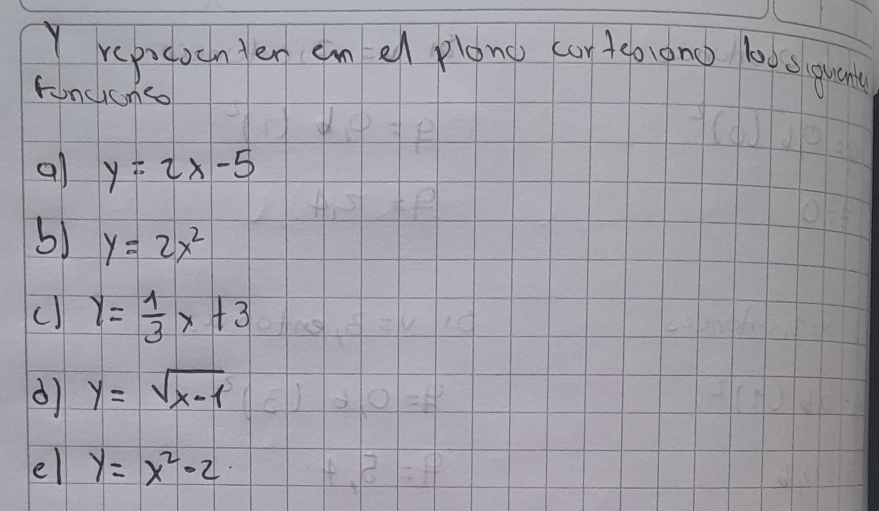 Y representen en el plano cartesiano las siguientes
funciones
a) y = 2x - 5
b) y = 2x²
c) y = 1/3 x + 3
d) y = √x-1
e) y = x² - 2.